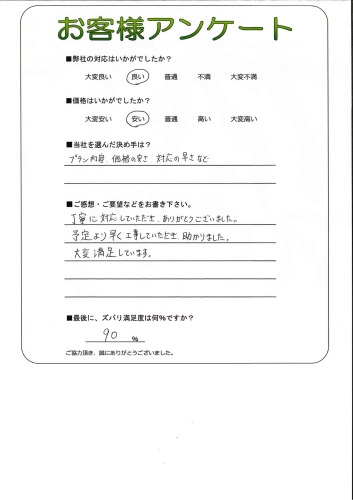 お客様アンケート
■弊社の対応はいかがでしたか？
大変良い 良い 普通 不満 大変不満
■価格はいかがでしたか？
大変安い 安い 普通 高い 大変高い
■当社を選んだ決め手は？
プラン内容、価格の安さ 対応の早さなど
■ご感想・ご要望などをお書き下さい。
丁寧に対応していただき、ありがとうございました。
予定より早く工事していただき、助かりました。
大変満足しています。
■最後に、ズバリ満足度は何%ですか？
90 %
ご協力頂き、誠にありがとうございました。